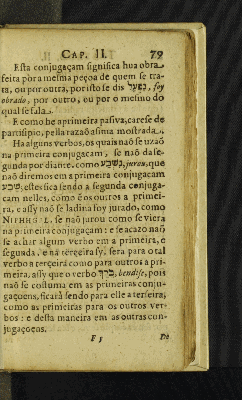 CAP. II. 79
Esta conjugaçam significa hua obra
feita por a mesma peçoa de quem se tra-
ta, ou por outra, por isto se dis נפעל, foy
obrado, por outro, eu por o mesmo do
qual se fala.
E como he aprimeira pasiva, carese de
partisipio, pella razaõ asima mostrada.
Ha alguns verbos, os quais naõ se uzaõ
na primeira conjugacam, se naõ da se-
gunda por diante. como נשבע, jurou, que
naõ diremos em a primeira conjugacam
שבע, estes fica sendo a segunda conjuga-
cam nelles, como é os outros a primei-
ra, e assy naõ se ladina foy jurado, como
NIPHHGAL, se naõ jurou como se viera
na primeira conjugaçam: e se acazo naõ
se achar algum verbo em a primeira, e
segunda, e na terçeira sy, sera para o tal
verbo a terçeira como para outros a pri-
meira, assy que o verbo ברך, bendise, pois
naõ se costuma em as primeiras conju-
gaçoens, ficará sendo para elle a terseira,
como as primeiras para os outros ver-
bos: e desta maneira em as outras con-
jugaçoens.
F 5 De